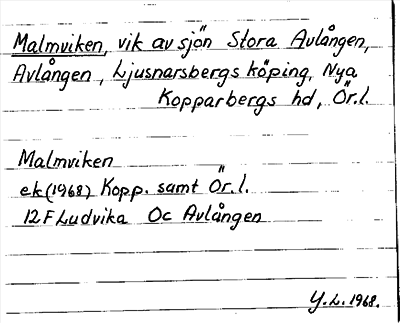 Malmviken, vik av sjön Stora Avlången,
Avlången, Ljusnarsbergs köping, Nya
Kopparbergs hd, Ör.l.
Malmviken
ek (1968) Kopp. samt Ör.l.
12F Ludvika Oc Avlången
Y.L. 1968.